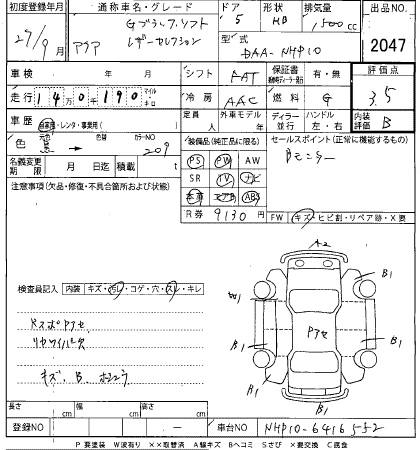 初度登録年月 通称車名・グレード ドア 形状 排気量 出品NO
27/9月 アクア Gブラックソフト 5 HB 1,500cc
レザーセレクション
型式 DAA-NHP10 2047
車検 年 月 シフト FAT 保証書 有・無 評価点
走行 140千190 マイル キロ 冷房 AAC 燃料 G 3.5
車歴 自家用・レンタ・事業用( ) 定員 人 外車モデル 年 ディラー 並行 ハンドル 左・右 内装評価 B
色 元色 黒 → 色替 カラーNO 209 装備品(純正品に限る) セールスポイント(正常に機能するもの)
PS PW AW Bモニター
名義変更期限 月 日迄 積載 t
SR TV ナビ
注意事項(欠品・修復・不具合箇所および状態) 本革 エアB ABS
R券 9130 円 FW キズ・ヒビ割・リペア跡・X要
A2
検査員記入 内装 キズ・汚レ・コゲ・穴・スレ・キレ
B1
B1
B1
B1
B1
Pアセ
ドスポPアセ
リヤワイパー欠
キズ、B、
長さ cm 幅 cm 高さ cm
登録NO ― 車台NO NHP10-6416552
P 要塗装 W波有り ××取替済 A線キズ Bヘコミ Sさび ×要交換 C腐食